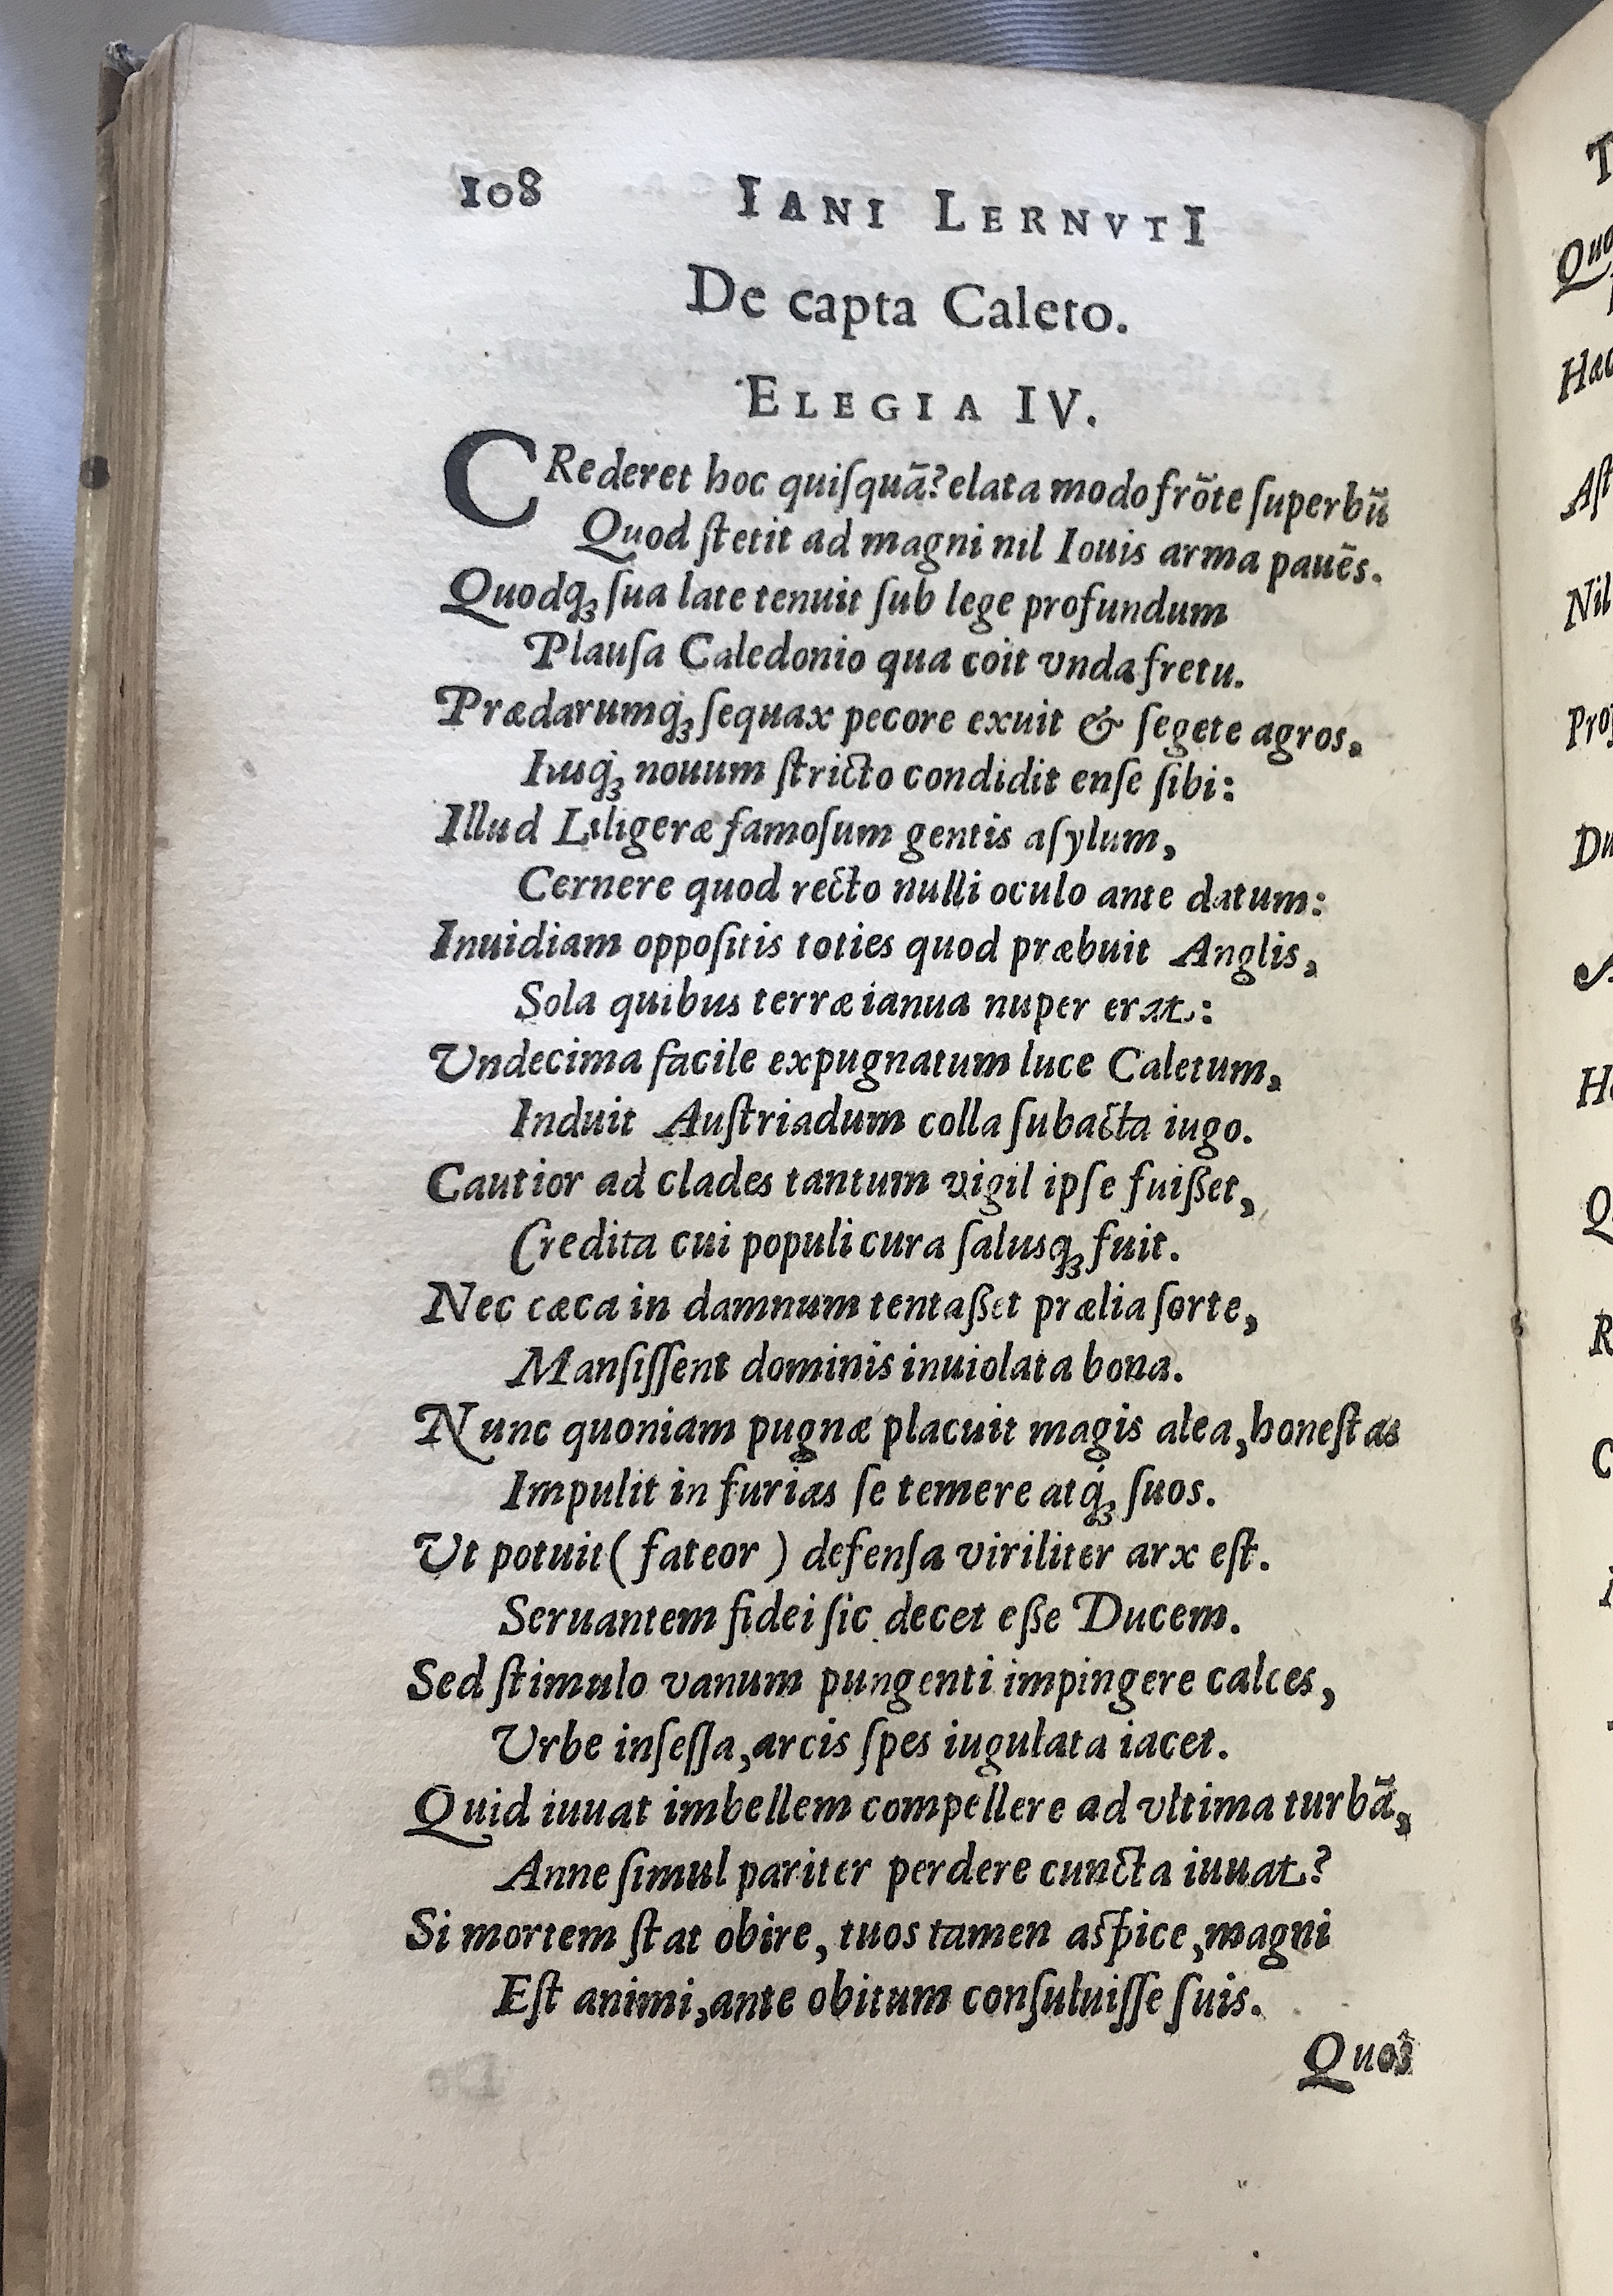 108 IANI LERNVTI
De capta Caleto.
ELEGIA IV.
CRederet hoc quiſquã? elata modo frõte ſuperbũ
Quod ſtetit ad magni nil Iouis arma pauẽs.
Quodq́ꝫ ſua late tenuit ſub lege profundum
Plauſa Caledonio qua coit vnda fretu.
Prædarumq́ꝫ ſequax pecore exuit & ſegete agros,
Iusq́ꝫ nouum ſtricto condidit enſe ſibi:
Illud Liligeræ famoſum gentis aſylum,
Cernere quod recto nulli oculo ante datum:
Inuidiam oppoſitis toties quod præbuit Anglis,
Sola quibus terræ ianua nuper erat:
Vndecima facile expugnatum luce Caletum,
Induit Auſtriadum colla ſubacta iugo.
Cautior ad clades tantum vigil ipſe fuißet,
Credita cui populi cura ſalusq́ꝫ fuit.
Nec cæca in damnum tentaßet prælia ſorte,
Manſiſſent dominis inuiolata bona.
Nunc quoniam pugnæ placuit magis alea, honeſtas
Impulit in furias ſe temere atq́ꝫ ſuos.
Vt potuit ( fateor ) defenſa viriliter arx eſt.
Seruantem fidei ſic decet eße Ducem.
Sed ſtimulo vanum pungenti impingere calces,
Vrbe inſeſſa, arcis ſpes iugulata iacet.
Quid iuuat imbellem compellere ad vltima turbã,
Anne ſimul pariter perdere cuncta iuuat?
Si mortem ſtat obire, tuos tamen aſpice, magni
Eſt animi, ante obitum conſuluiſſe ſuis.
Quos
T
Quo
Hac
Aſt
Nil
Pro
Du
H
Q
R
C